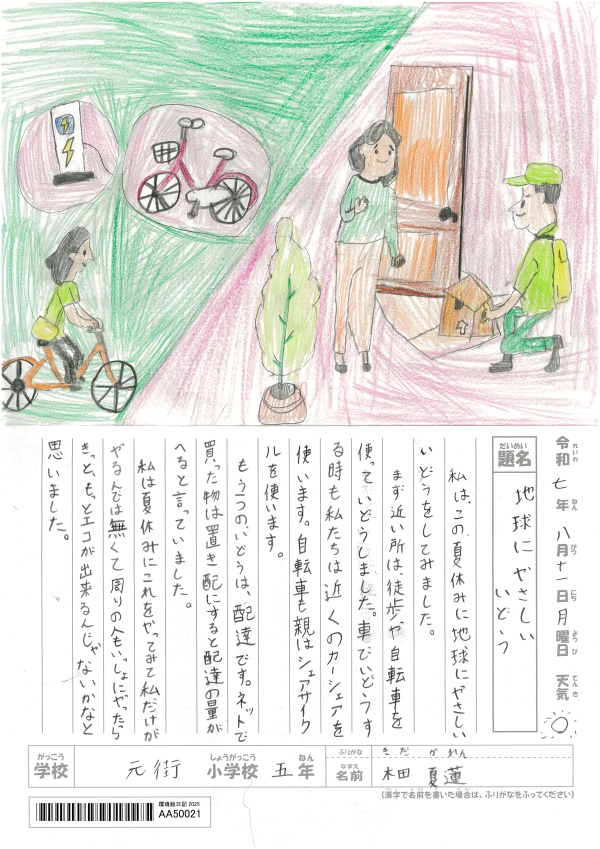 令和七年八月十一日月曜日 天気
れいわ ねん がつ にち ようび てんき
だいめい
題名
地球にやさしい
いどう
私は、この夏休みに地球にやさしい
いどうをしてみました。
まず近い所は、徒歩や自転車を
使っていどうしました。車でいどうす
る時も私たちは近くのカーシェアを
使います。自転車も親はシェアサイク
ルを使います。
もう一つの、いどうは、配達です。ネットで
買った物は置き配にすると配達の量が
へると言っていました。
私は夏休みにこれをやってみて私だけが
やるんでは無くて周りの人もいっしょにやったら
きっと、もっとエコが出来るんじゃないかなと
思いました。
がっこう
学校
元街
しょうがっこう
小学校
五
ねん
年
ふりがな
きだ かれん
なまえ
名前
木田 夏蓮
(漢字で名前を書いた場合は、ふりがなをふってください)
環境絵日記 2025
AA50021